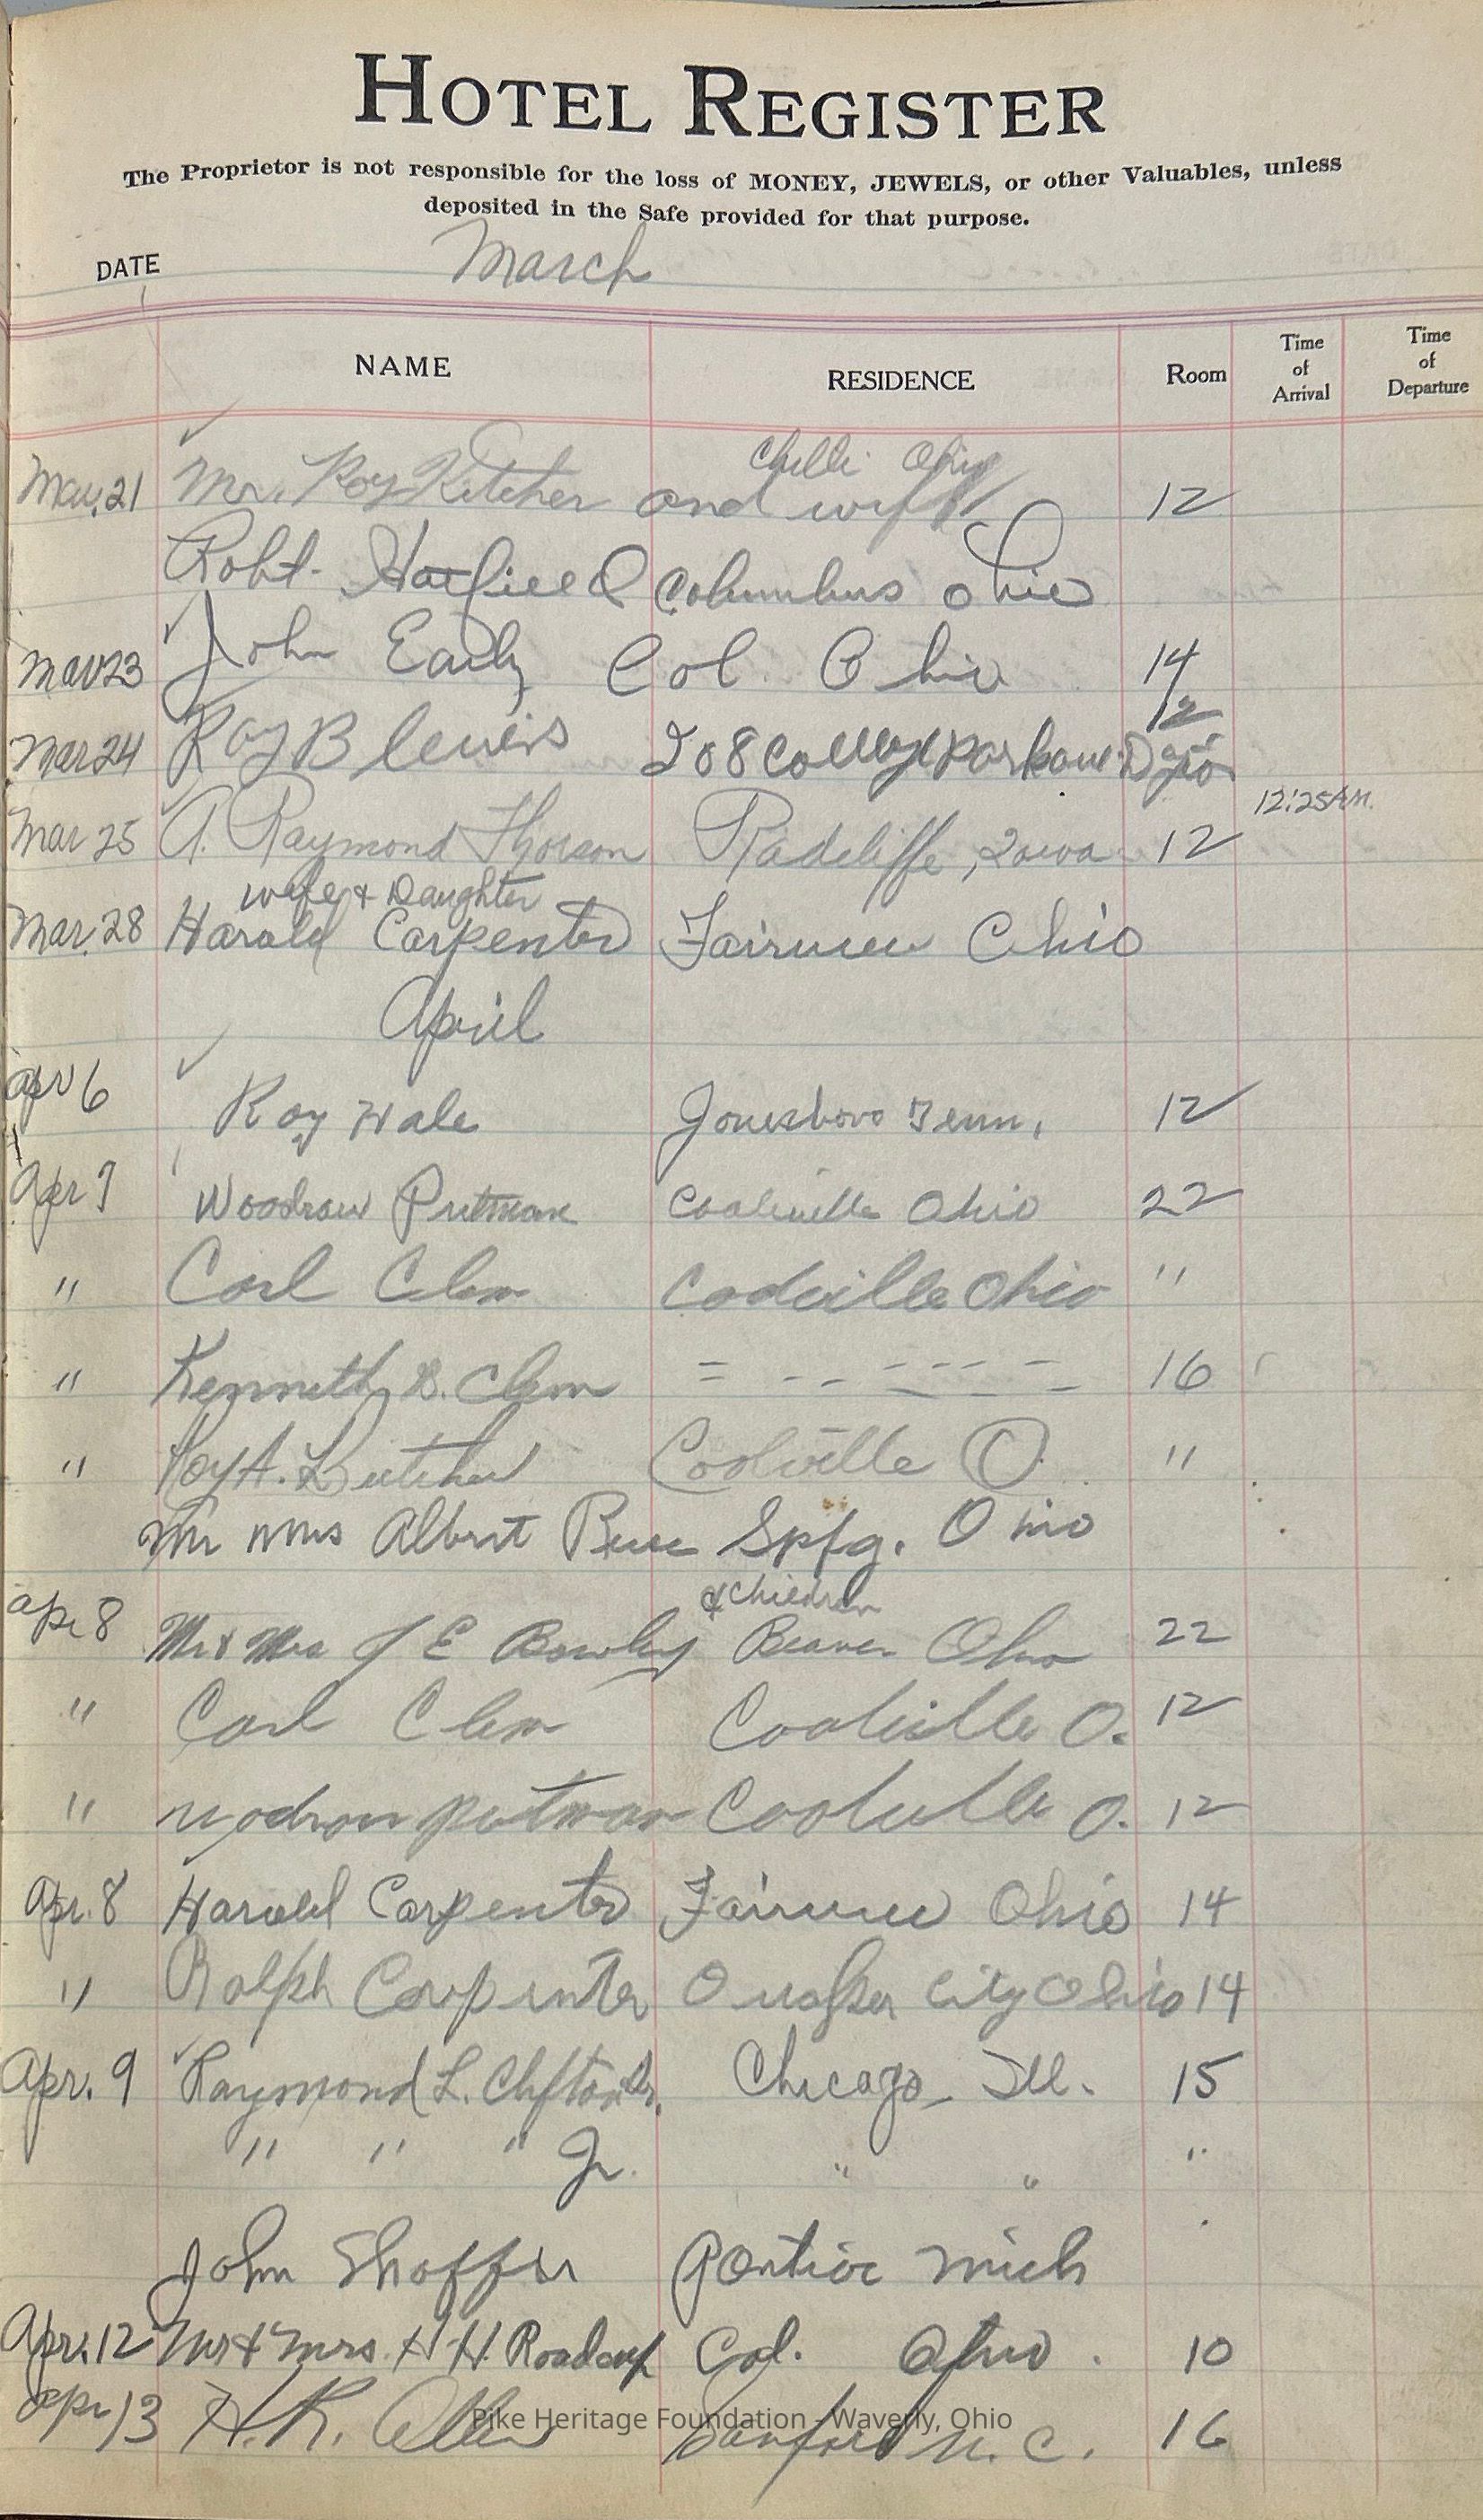 HOTEL REGISTER
The Proprietor is not responsible for the loss of MONEY, JEWELS, or other Valuables, unless
deposited in the Safe provided for that purpose.
DATE March
NAME RESIDENCE Room Time of Arrival Time of Departure
Chilli Ohio
Mar. 21 Mr. Roy Kitcher and wife 12
Robt. Hatfield Columbus Ohio
Mar 23 John Early Col. Ohio 14
12
Mar 24 Ray B Lewis 208 College Park ave
12:25 AM.
Mar 25 A. Raymond Thorson Radcliffe, Iowa 12
wife & Daughter
Mar. 28 Harold Carpenter Fairview Ohio
April
apr 6 Roy Hale Jonesboro Tenn. 12
Apr 7 Woodrow Putman Coolville Ohio 22
" Carl Clem Coolville Ohio "
" Kenneth B. Clem = - - - - - - - 16
" Roy A. Butcher Coolville O. "
Mr Mrs Albert Spfg. Ohio
& Children
apr 8 Mr & Mrs J E Beaver Ohio 22
" Carl Clem Coolville O. 12
" Wodrow Putman Coolville O. 12
Apr. 8 Harold Carpenter Fairview Ohio 14
" Ralph Carpenter Quaker City Ohio 14
Apr. 9 Raymond L. Clifton Sr. Chicago Ill. 15
" " " Jr. " " "
John Shoffer Pontiac Mich
Apr. 12 Mr & Mrs. H H. Roadcup Col. Ohio. 10
apr 13 H. R. Allen Sanford N. C. 16
Pike Heritage Foundation - Waverly, Ohio